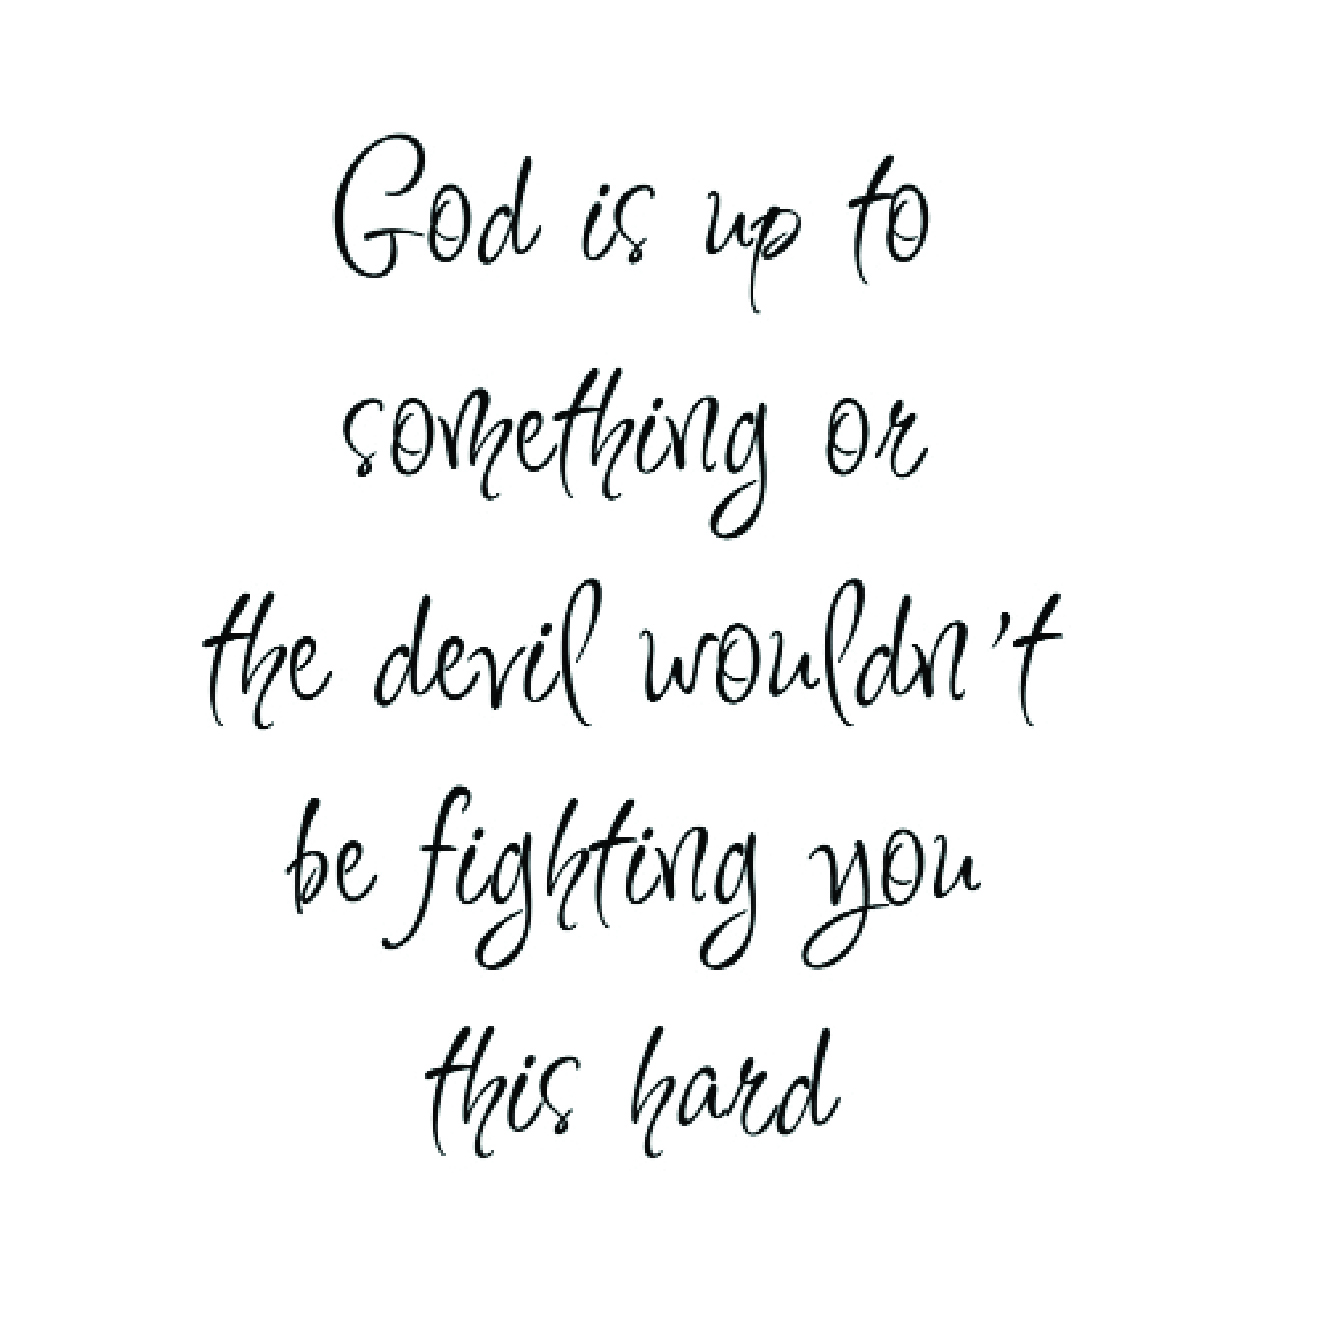 God is up to
something or
the devil wouldn't
be fighting you
this hard